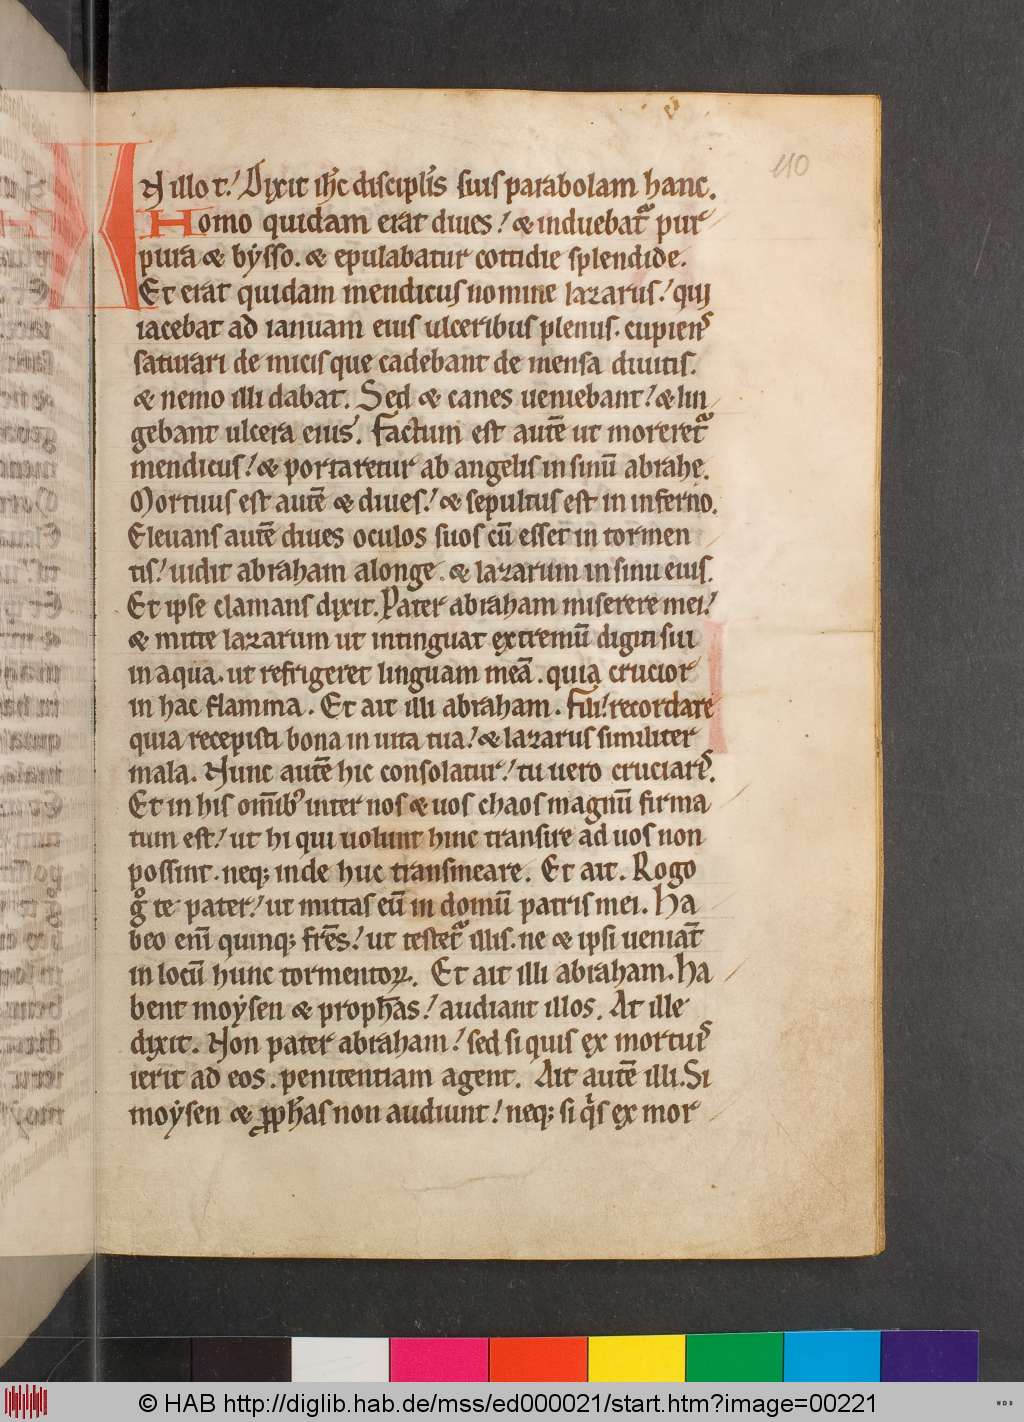 110
IN illo t̅. Dixit ih̅c discipl̅is suis parabolam hanc.
Homo quidam erat diues / & induebat᷑ pur
pura & bysso. & epulabatur cottidie splendide.
Et erat quidam mendicus nomine lazarus / qui
iacebat ad ianuam eius ulceribus plenus. cupiens
saturari de micis que cadebant de mensa diuitis.
& nemo illi dabat. Sed & canes ueniebant / & lin
gebant ulcera eius. Factum est aute̅ ut moreret᷑
mendicus / & portaretur ab angelis in sinu̅ abrahe.
Mortuus est aute̅ & diues / & sepultus est in inferno.
Eleuans aute̅ diues oculos suos cu̅ esset in tormen
tis / uidit abraham alonge. & lazarum in sinu eius.
Et ipse clamans dixit. Pater abraham miserere mei /
& mitte lazarum ut intinguat extremu̅ digiti sui
in aqua. ut refrigeret linguam mea̅. quia crucior
in hac flamma. Et ait illi abraham. Fili / recordare
quia recepisti bona in uita tua / & lazarus similiter
mala. Nunc aute̅ hic consolatur / tu uero cruciaris.
Et in his om̅ib᷒ inter nos & uos chaos magnu̅ firma
tum est / ut hi qui uolunt hinc transire ad uos non
possint. neq; inde huc transmeare. Et ait. Rogo
gͦ te pater / ut mittas eu̅ in domu̅ patris mei. Ha
beo eni̅ quinq; fr̅es / ut testet᷑ illis. ne & ipsi uenia̅t
in locu̅ hunc tormentoꝝ. Et ait illi abraham. Ha
bent moysen & proph̅as / audiant illos. At ille
dixit. Non pater abraham / sed si quis ex mortuis
ierit ad eos. penitentiam agent. Ait aute̅ illi. Si
moysen & ꝓph̅as non audiunt / neq; si qͥs ex mor
© HAB http://diglib.hab.de/mss/ed000021/start.htm?image=00221